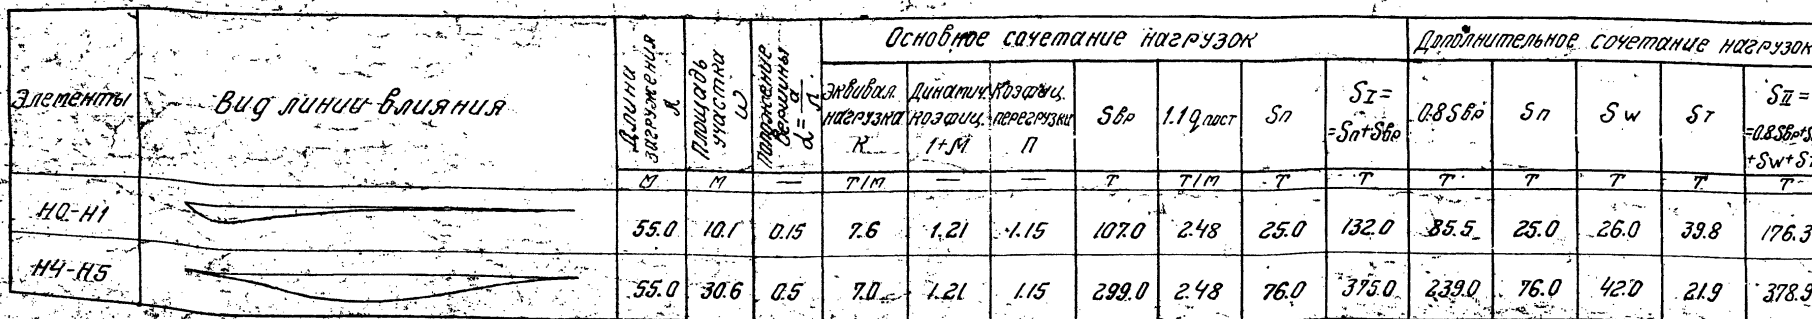 Элементы
Вид линии влияния
Длина загружения λ
Площадь участка ω
Положение вершины α = a/λ
Основное сочетание нагрузок
Эквивал. нагрузка К
Динамич. коэфиц. 1+М
Коэфиц. перегрузки П
Sвр
1.1 q пост
Sп
SI= =Sп+Sвр
Дополнительное сочетание нагрузок
0.8Sвр
Sп
Sw
Sт
SII= =0.8Sвр+S +Sw+Sт
м м — т/м — — т т/м т т т т т т т
Н0-Н1 55.0 10.1 0.15 7.6 1.21 1.15 107.0 2.48 25.0 132.0 85.5 25.0 26.0 39.8 176.3
Н4-Н5 55.0 30.6 0.5 7.0 1.21 1.15 299.0 2.48 76.0 375.0 239.0 76.0 42.0 21.9 378.9